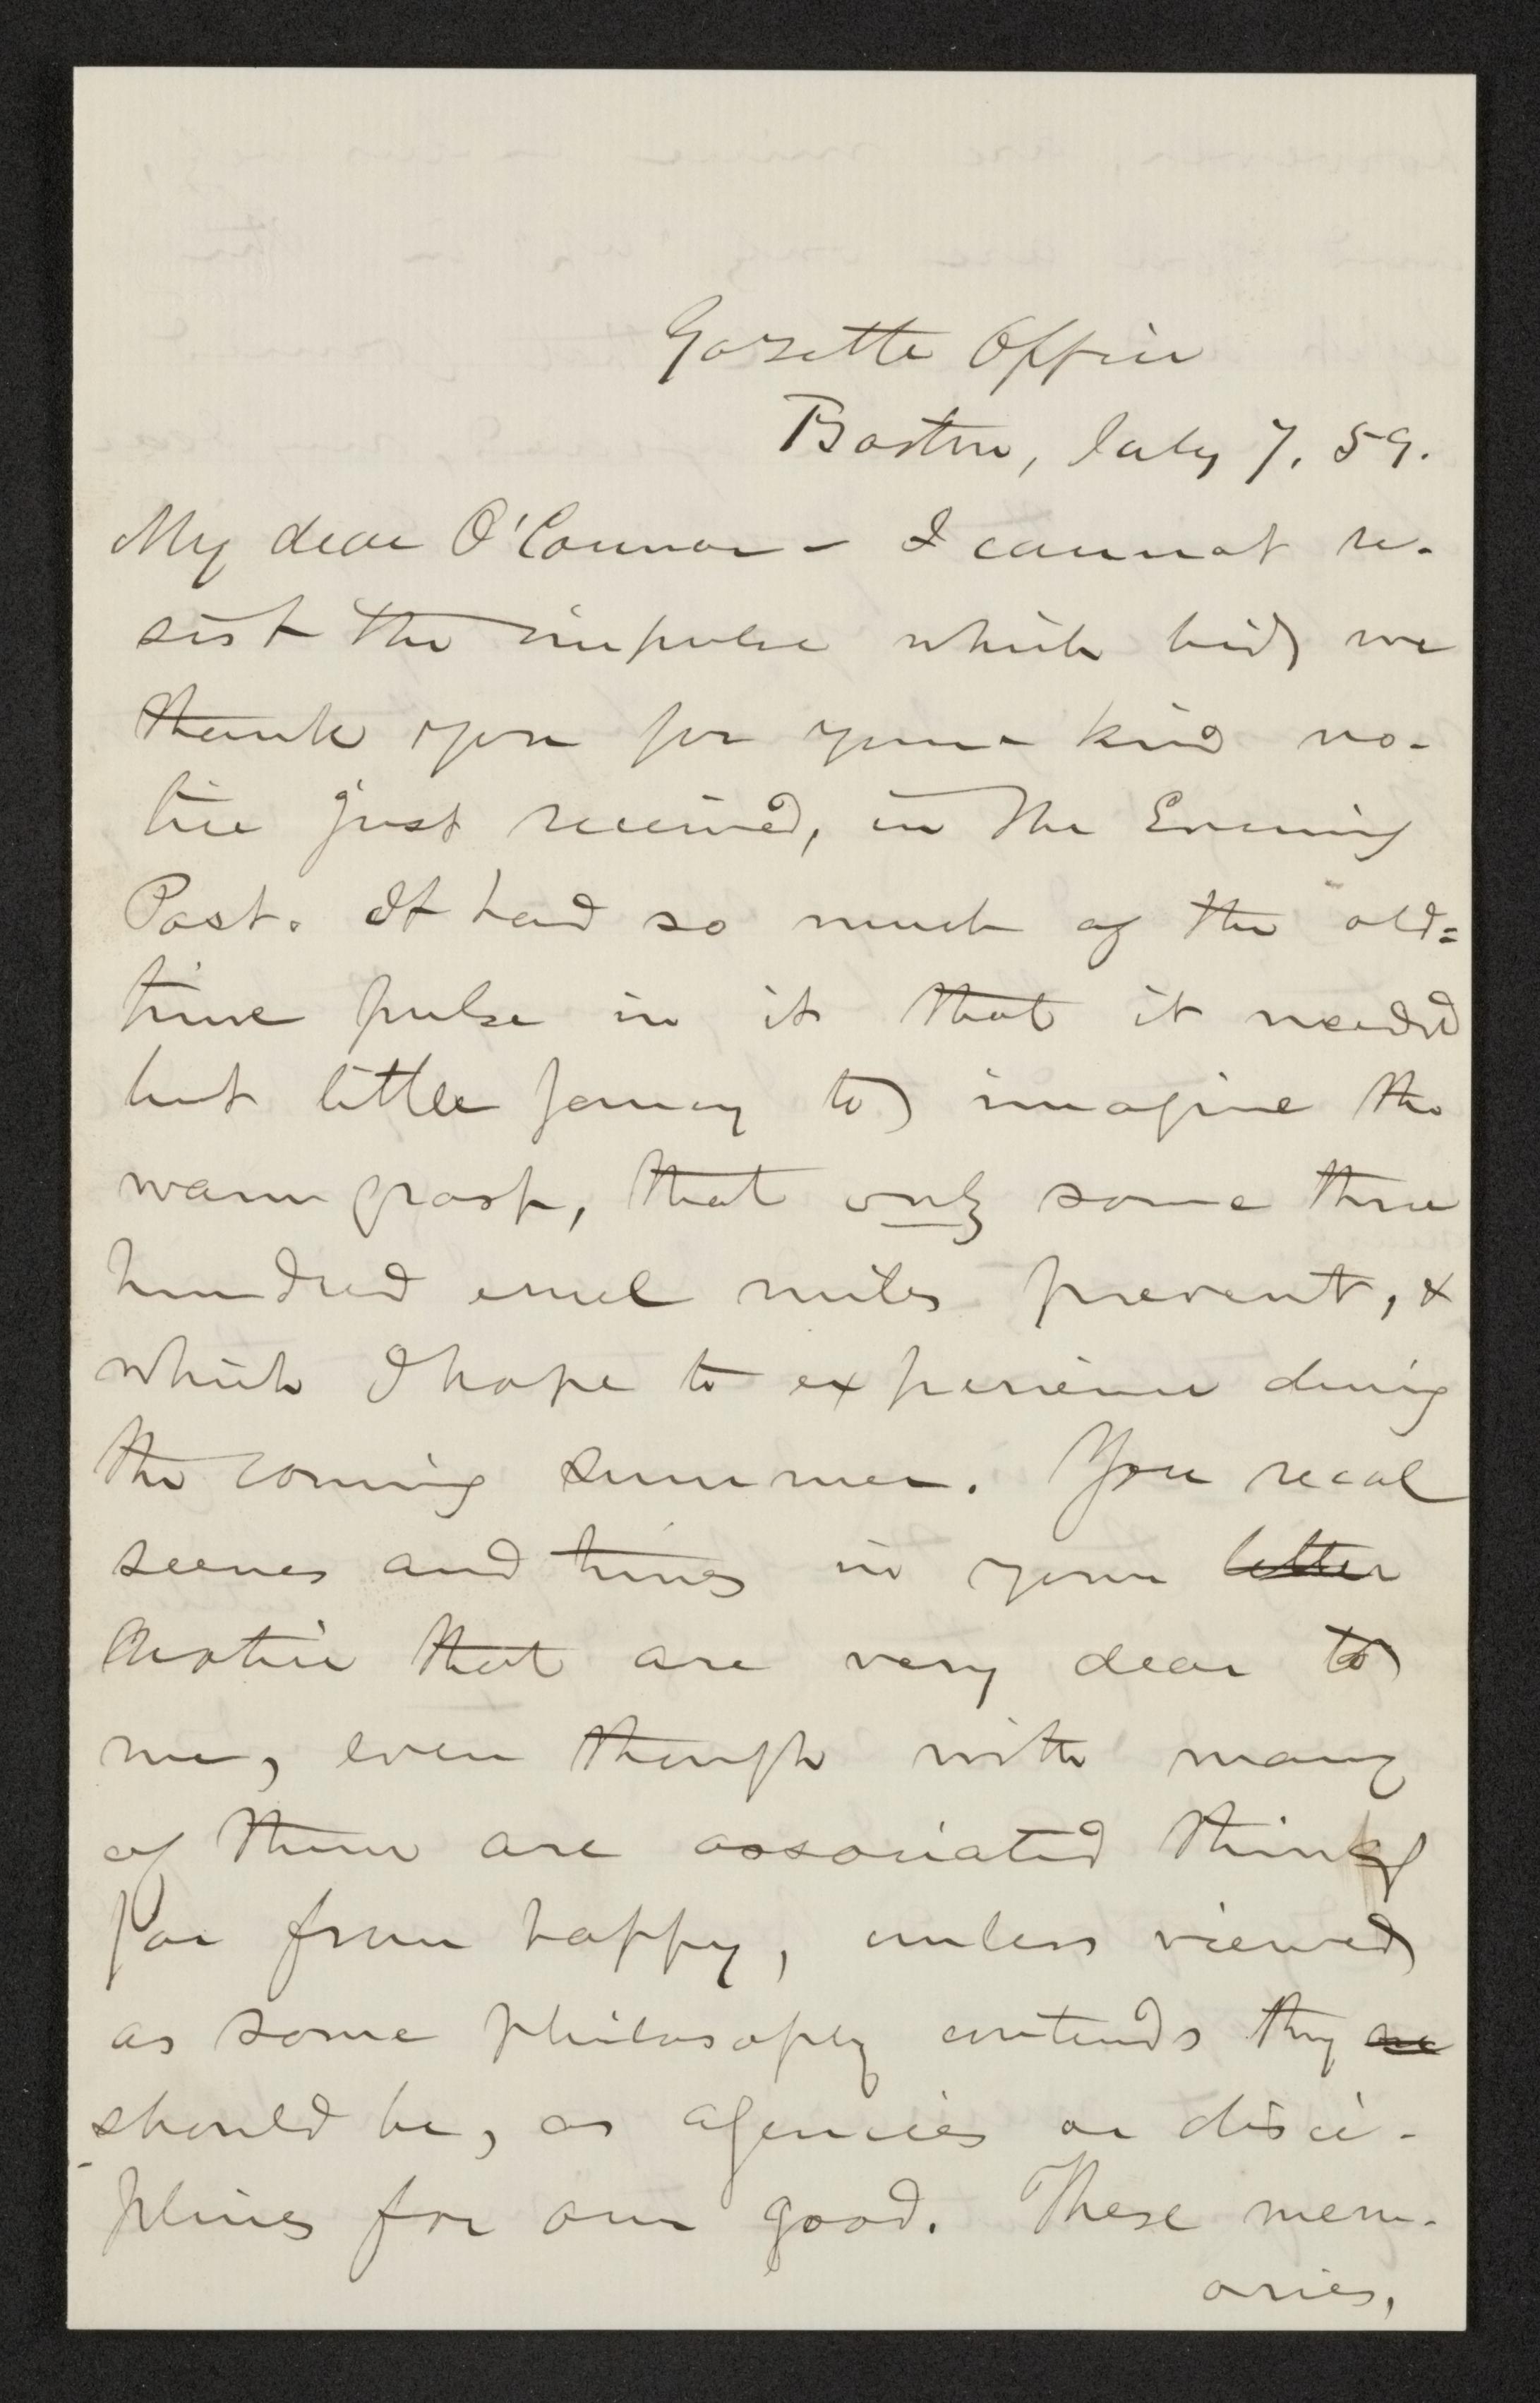 Gazette Office
Boston, July 7, 59.
My dear O'Connor - I cannot re-
sist the impulse which bids me
thank you for your kind no-
tice just received, in the Evening
Post. It had so much of the old=
time pulse in it that it needed
but little fancy to imagine the
warm grasp, that only some three
hundred cruel miles prevent, &
which I hope to experience during
the coming summer. You recal
scenes and times in your letter
notice that are very dear to
me, even though with many
of them are associated things
far from happy, unless viewed
as some philosophy contends they are
should be, as agencies or disci-
plines for our good. These mem-
ories,